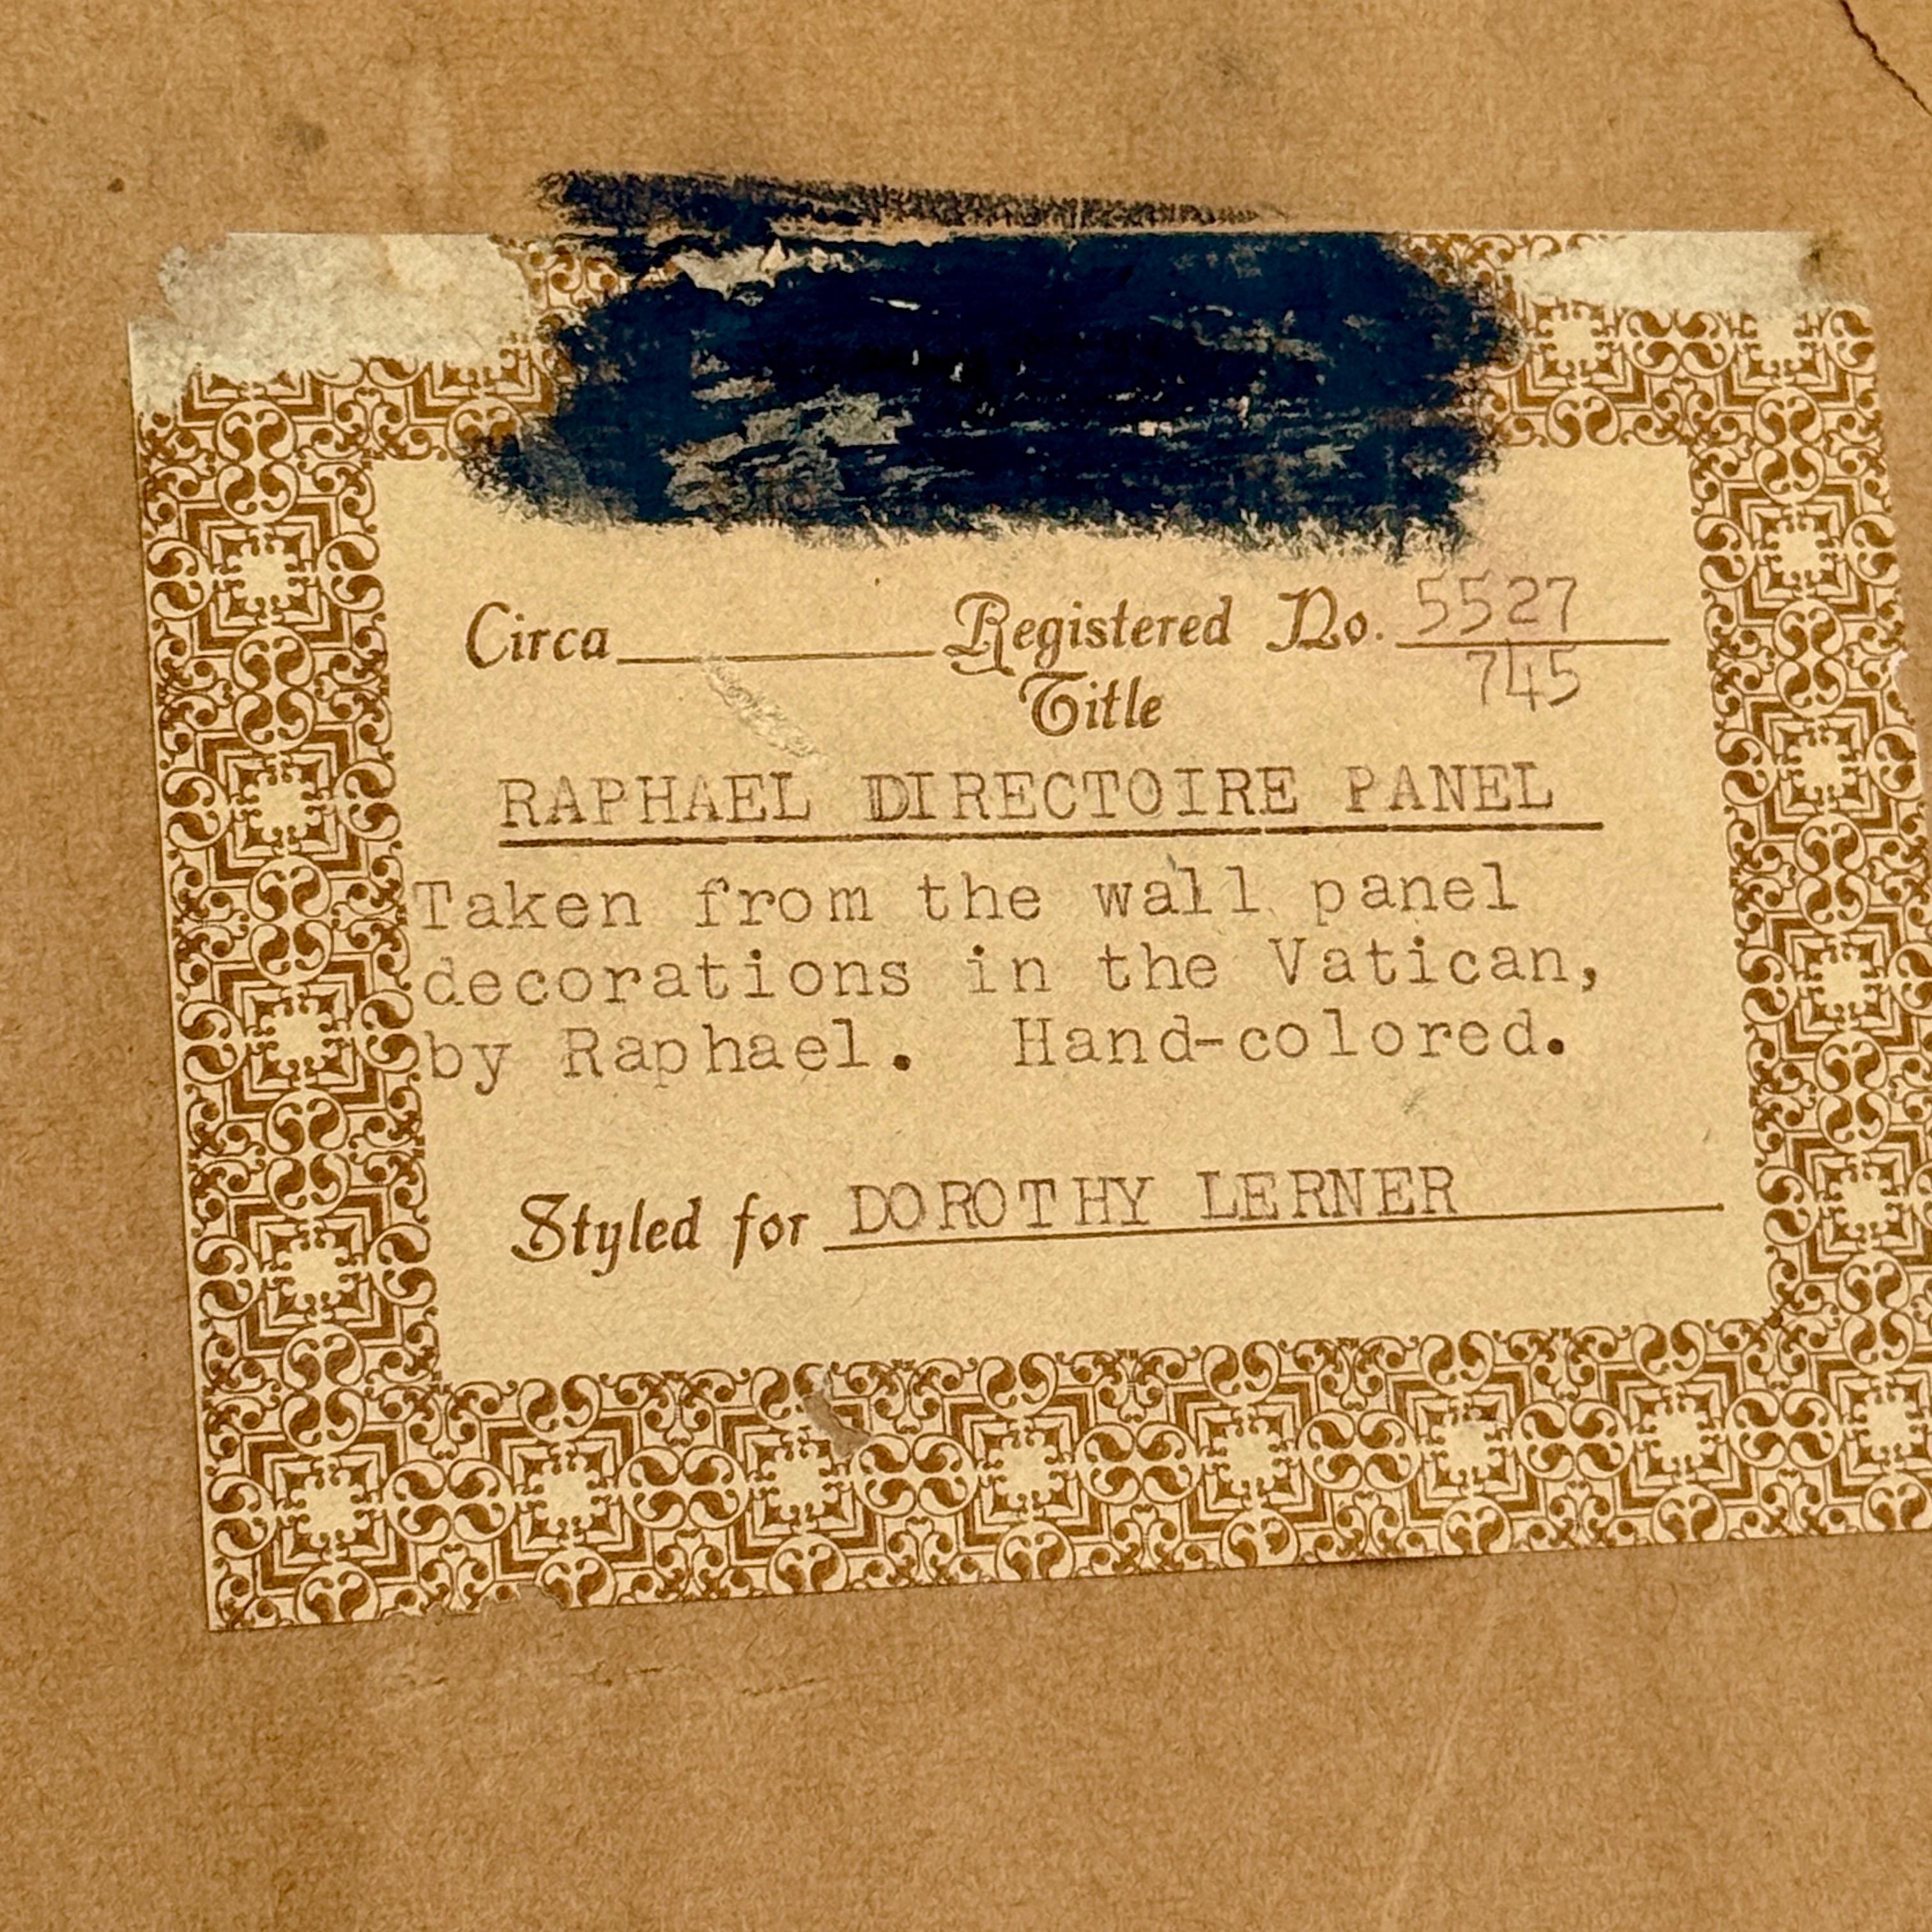 Circa Registered No. 5527
745
Title
RAPHAEL DIRECTOIRE PANEL
Taken from the wall panel
decorations in the Vatican,
by Raphael. Hand-colored.
Styled for DOROTHY LERNER